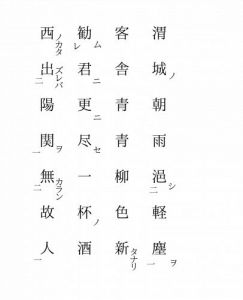 渭城ノ朝雨浥シ二軽塵ヲ一
客舎青青柳色新タナリ
勧ムレ君ニ更ニ尽セ一杯ノ酒
西ノカタ出ズレバ二陽関ヲ一無カラン二故人一